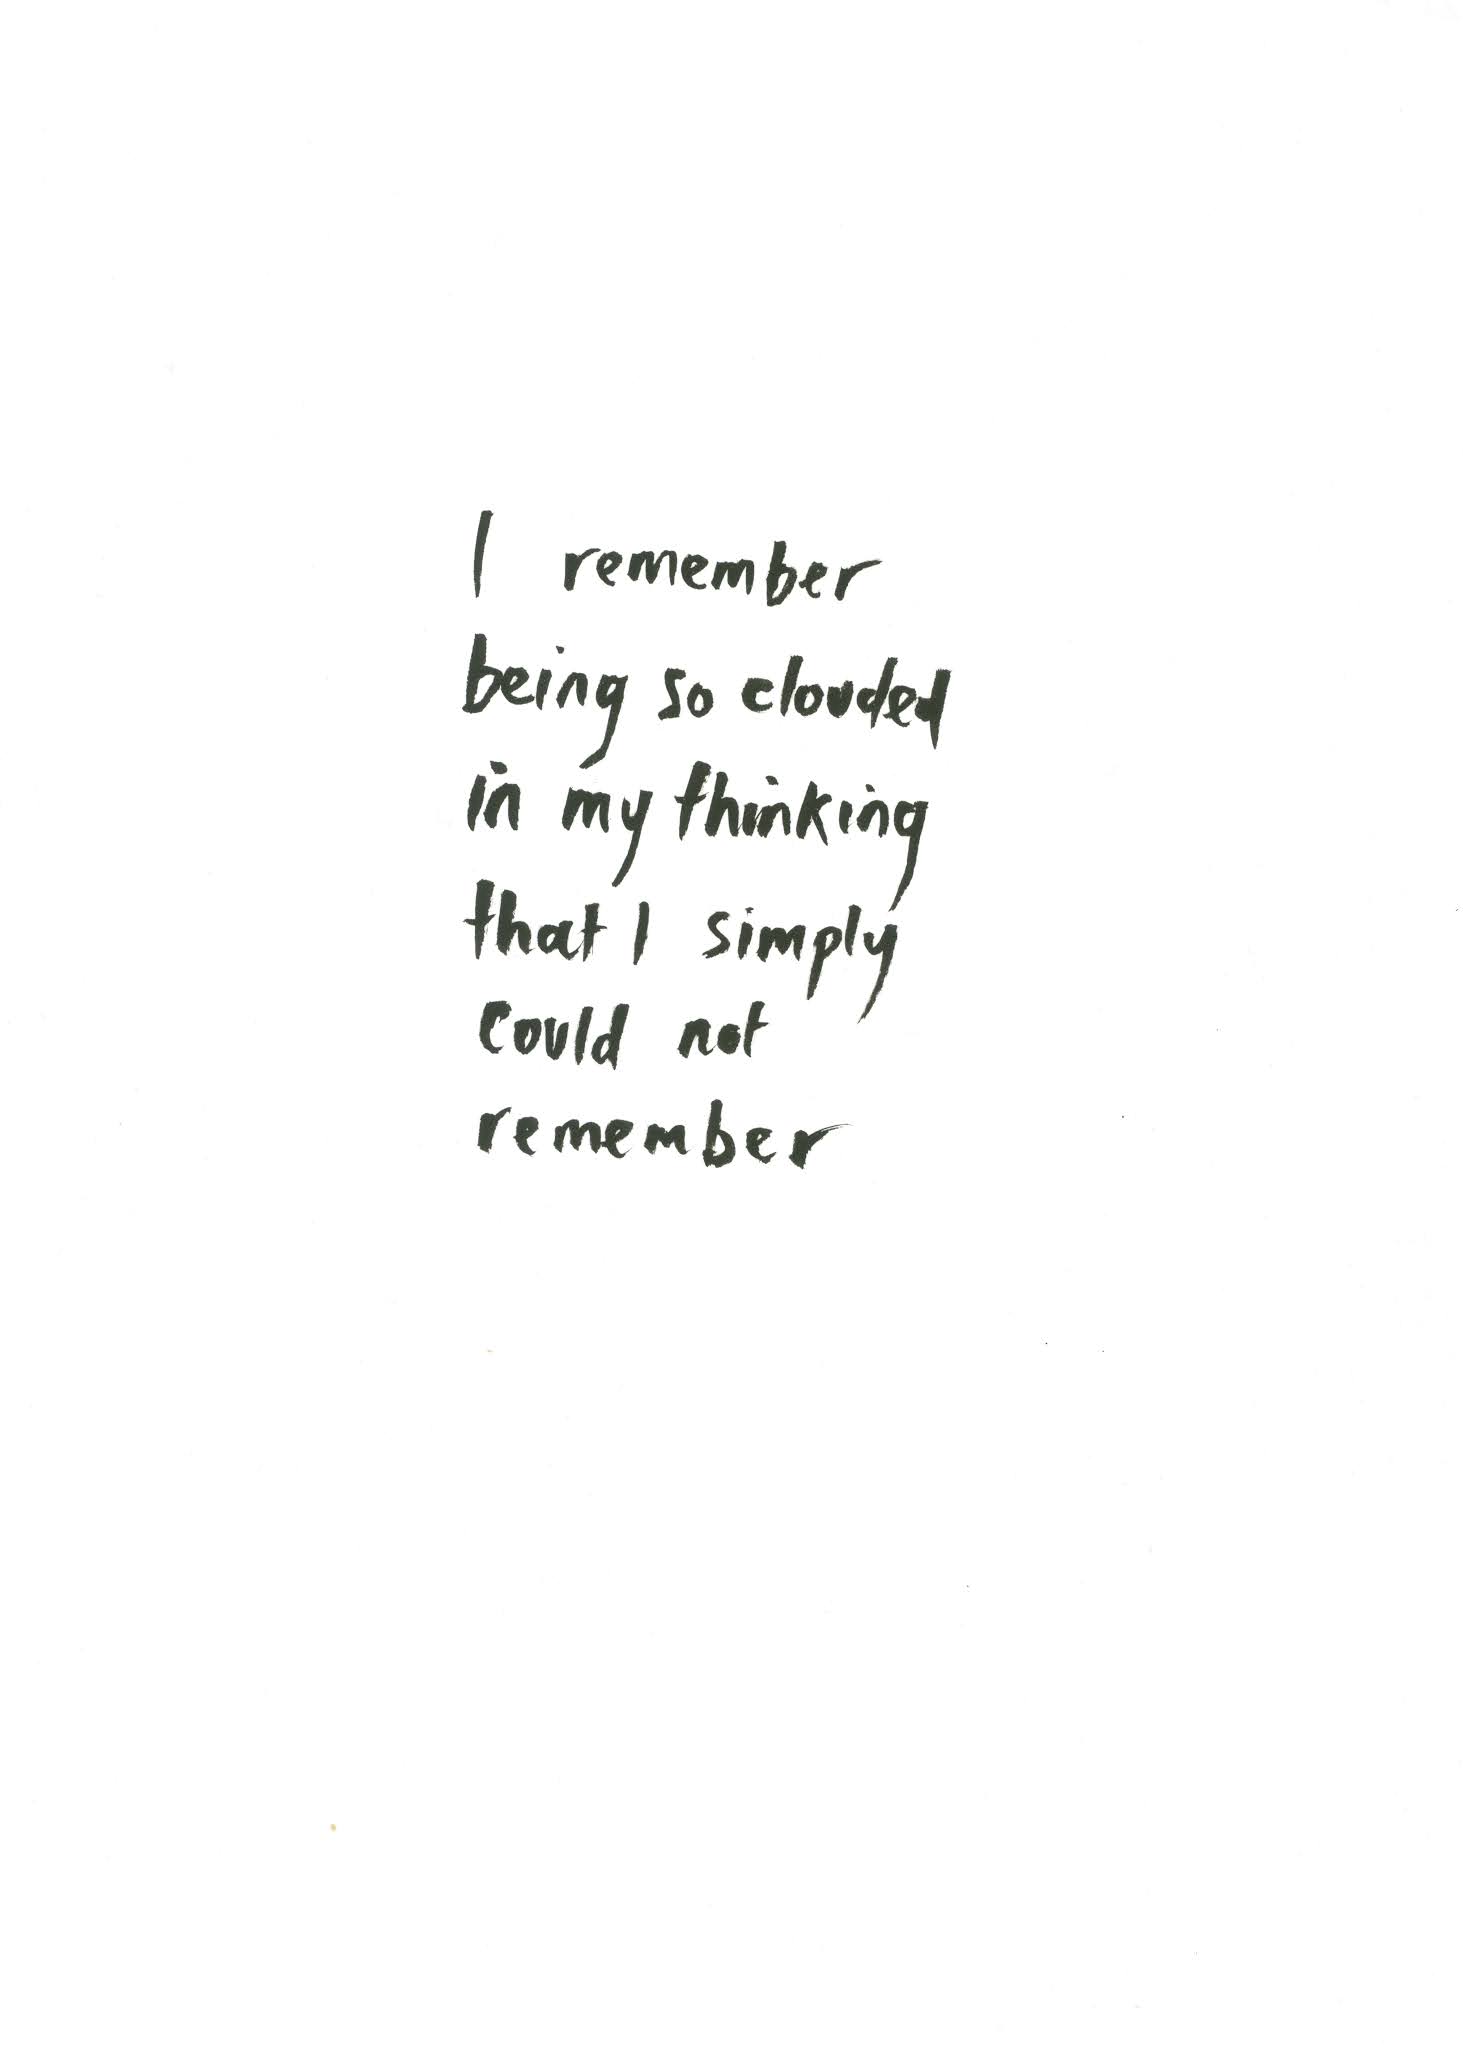 I remember
being so clouded
in my thinking
that I simply
could not
remember